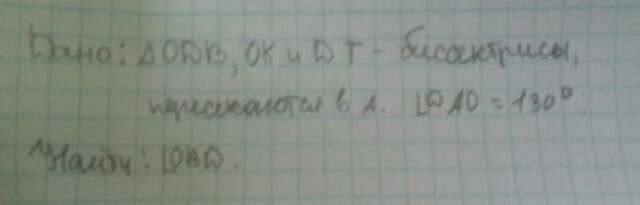 Дано: △ODB, OK и DT - биссектрисы,
пересекаются в A. ∠DAO = 130°.
Найти: ∠OBD.